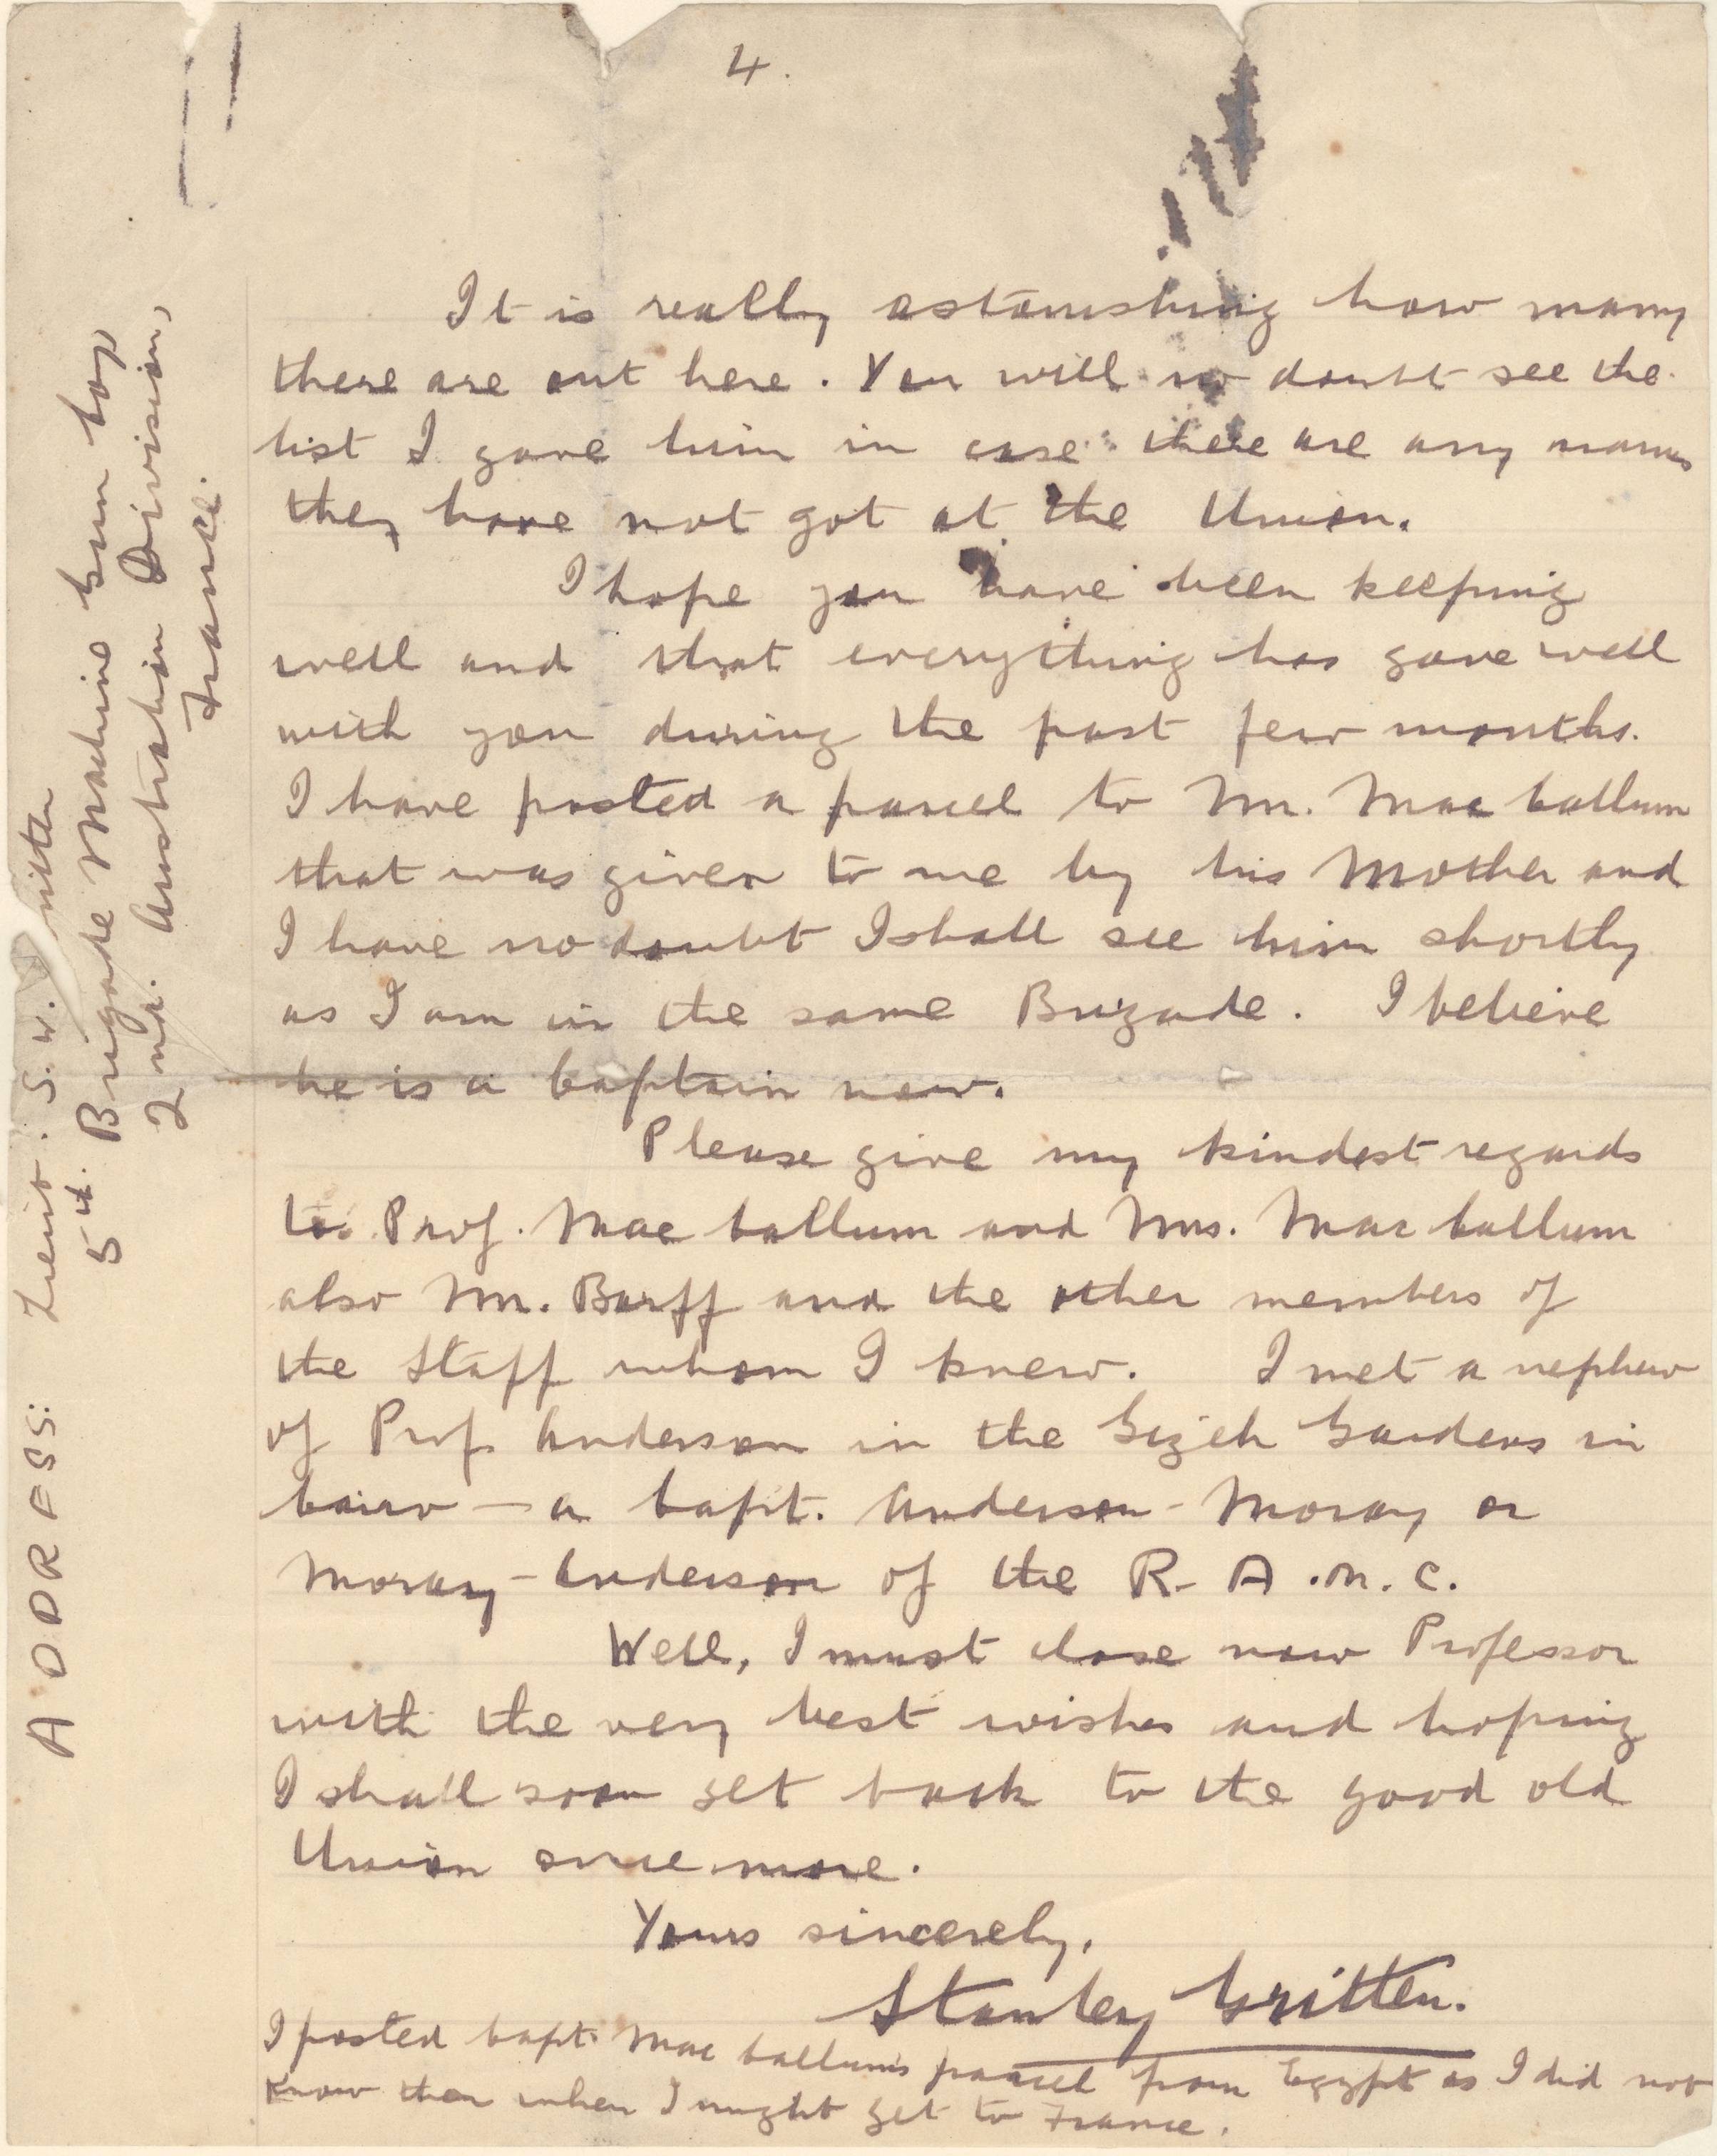 4.
It is really astonishing how many
there are out here. You will no doubt see the
list I gave him in case there are any names
they have not got at the Union.
I hope you have been keeping
well and that everything has gone well
with you during the past few months.
I have posted a parcel to Mr. MacCallum
that was given to me by his Mother and
I have no doubt I shall see him shortly
as I am in the same Brigade. I believe
he is a Captain now.
Please give my kindest regards
to Prof. MacCallum and Mrs. MacCallum
also Mr. Barff and the other members of
the Staff whom I knew. I met a nephew
of Prof. Anderson in the Gizeh Gardens in
Cairo — a Capt. Anderson-Moray or
Moray-Anderson of the R.A.M.C.
Well, I must close now Professor
with the very best wishes and hoping
I shall soon get back to the good old
Union once more.
Yours sincerely,
Stanley Gritten.
I posted Capt. MacCallum's parcel from Egypt as I did not
know then when I might get to France.
ADDRESS: Lieut. S. W.
5th. Brigade Machine Gun Coy
2nd. Australian Division,
France.